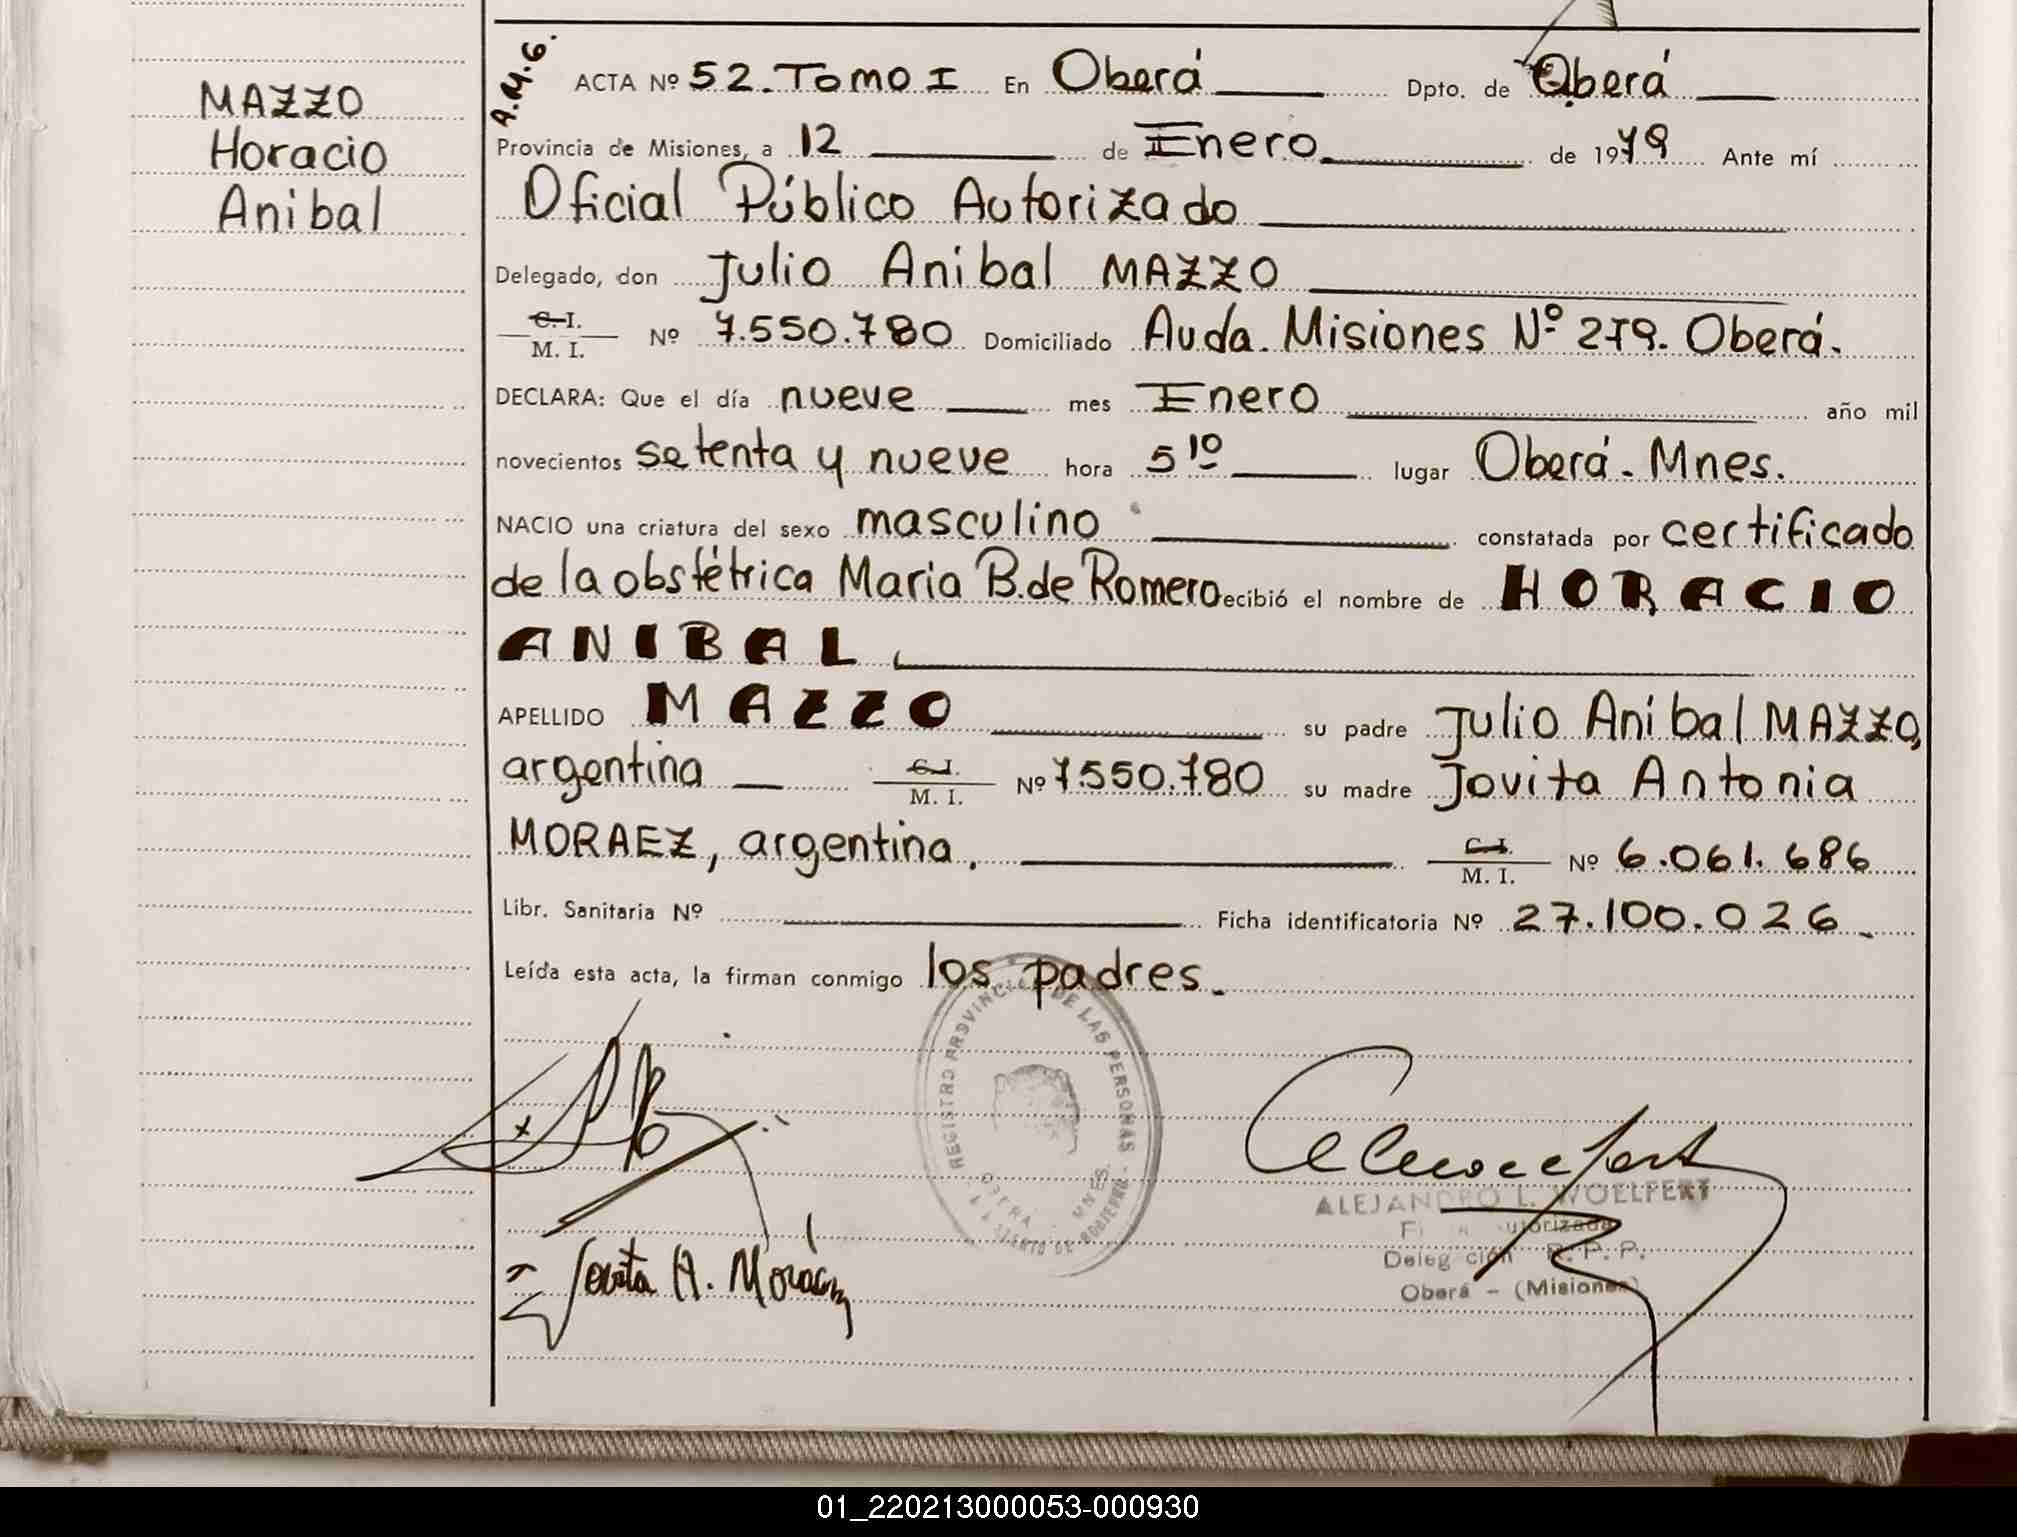 MAZZO
Horacio
Anibal
A.M.G.
ACTA Nº 52. Tomo I En Oberá Dpto. de Oberá
Provincia de Misiones, a 12 de Enero de 1979 Ante mí
Oficial Público Autorizado
Delegado, don Julio Anibal MAZZO
C. I. / M. I. Nº 7.550.780 Domiciliado Avda. Misiones Nº 279. Oberá.
DECLARA: Que el día nueve mes Enero año mil
novecientos setenta y nueve hora 5 10 lugar Oberá. Mnes.
NACIO una criatura del sexo masculino constatada por certificado
de la obstétrica Maria B. de Romero ecibió el nombre de HORACIO
ANIBAL
APELLIDO MAZZO su padre Julio Anibal MAZZO,
argentina C. I. / M. I. Nº 7.550.780 su madre Jovita Antonia
MORAEZ, argentina. C. I. / M. I. Nº 6.061.686
Libr. Sanitaria Nº Ficha identificatoria Nº 27.100.026
Leída esta acta, la firman conmigo los padres.
REGISTRO PROVINCIAL DE LAS PERSONAS
OBERA MNES.
Jovita A. Moráez
ALEJANDRO L. WOELFERT
utorizada
Deleg ción R. P. P.
Oberá - (Misiones)
01_220213000053-000930